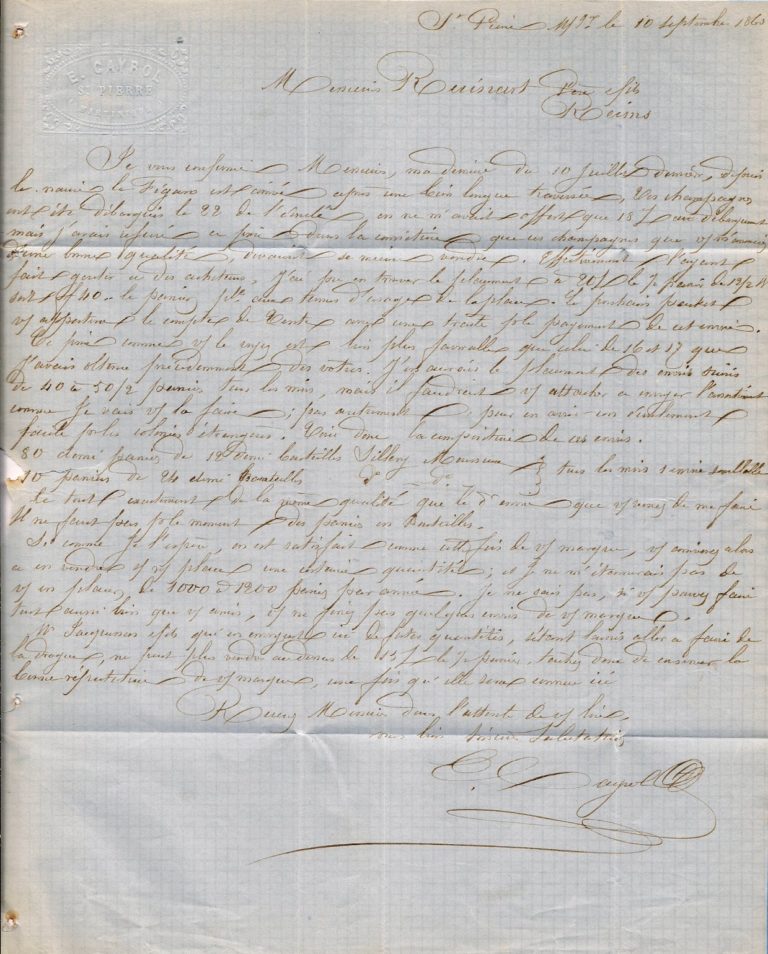 E. CAYROL
ST PIERRE
MARTINIQUE
St Pierre le 10 septembre
Messieurs Ruinart Père & fils
Reims
Je vous confirme Messieurs, ma dernière du 10 Juillet dernier, depuis
le navire le Figaro est arrivé après une bien longue traversée, Vos champagnes
ont été débarqués le 22 de l'écoulé on ne m'avait offert que 15 f au débarquement
mais j'avais refusé ce prix, dans la conviction que ces champagnes que vs m'annonciez
d'une bonne qualité, devaient se mieux vendre. Effectivement l'ayant
fait goûter à des acheteurs, j'ai pu en trouver le placement à 20 f le panier de 12/2 Blles
soit f 40 .. le panier aux termes d'usage de la place. Le prochain paquet
vs apportera le compte de Vente avec une traite pr le payement de cet envoi.
Ce prix comme vs le voyez est bien plus favorable que celui de 16 et 17 que
j'avais obtenu précédemment des votres. J'en aurais le placement des envois suivis
de 40 à 50/2 paniers tous les mois, mais il faudrait vs attacher à
comme Je vais vs la faire; pas autrement pour en avoir un écoulement
facile pr les colonies étrangères. Voici donc la composition de ces envois.
80 demi paniers de 12 demi bouteilles Sillery Mousseux } tous les mois 1 envoi semblable
10 paniers de 24 demi bouteilles do do
Le tout exactement de la même qualité que le der envoi que vs venez de me faire
Il ne faut pas pr le moment des paniers en Bouteilles.
Si comme Je l'espère, on est satisfait comme cette fois de vs marque, vs arriverez alors
à en vendre sur place une certaine quantité; et je ne m'étonnerais pas de
vs en placer de 1000 à 1200 paniers par année. Je ne sais pas, si vs pouvez faire
tout aussi bien que vs amis, vs ne ferez pas quelques envois de vs marque.
Mr Jacquesson & fils qui en envoyait ici de fortes quantités, s'étant laissé aller à faire de
la drogue, ne peut plus vendre au dessus de 15 f le panier. tâchez donc de conserver la
bonne réputation de vs marque, une fois qu'elle sera connue ici
Recevez Messieurs dans l'attente de vs lire.
mes bien sincères Salutations
E. Cayrol